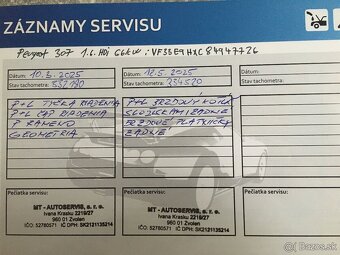 ZÁZNAMY SERVISU
Peugeot 307 1.6 HDi 66kW : VF33E9HXC84947726
Dátum: 10.3.2025
Dátum: 12.5.2025
Stav tachometra:
Stav tachometra:
P+L TYČKA RIADENIA
P+L BRZDOVÝ KOTÚČ
P+L ČAP RIADENIA
S LOŽISKAMI ZADNÉ
P RAMENO
BRZDOVÉ PLATNIČKY
GEOMETRIA
ZADNÉ
Pečiatka servisu:
Pečiatka servisu:
MT - AUTOSERVIS, s. r. o.
Ivana Krasku 2218/27
960 01 Zvolen
IČO: 52780571 IČ DPH: SK2121135214
MT - AUTOSERVIS, s. r. o.
Ivana Krasku 2218/27
960 01 Zvolen
IČO: 52780571 IČ DPH: SK2121135214
bazos.sk